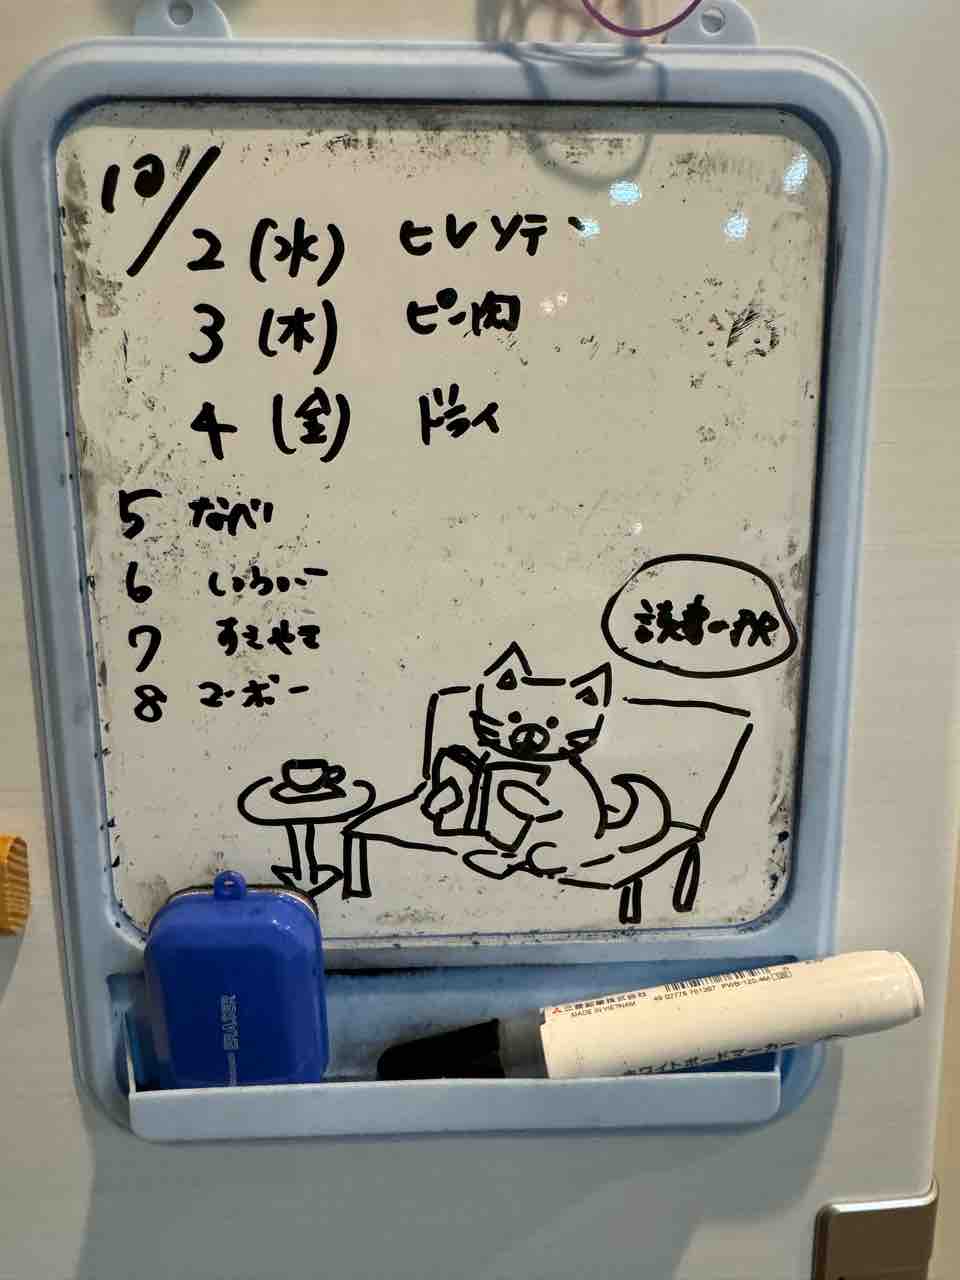 10/
2 (水) ヒレソテー
3 (木) ピン肉
4 (金) ドライ
5 なべ
6
7 すきやき
8 マーボー
読書の秋
ERASER
三菱鉛筆株式会社
MADE IN VIETNAM
PWB-120-4M
ホワイトボードマーカー